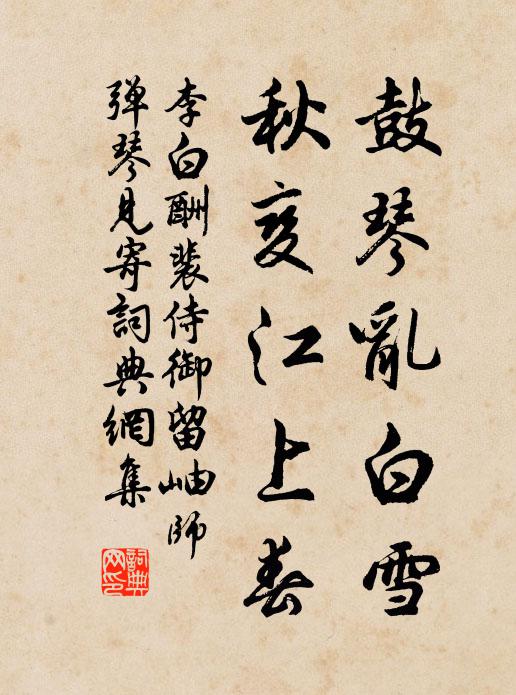 鼓琴亂白雪
秋変江上春
李白酬裴侍御留岫師
弾琴見寄詞典網集
詞典
网印